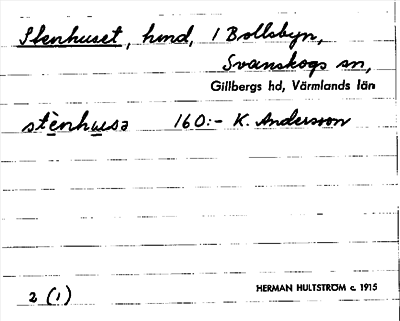 Stenhuset, hmd, / Bollsbyn,
Svanskogs sn,
Gillbergs hd, Värmlands län
stènhusə 160:- K. Andersson
2 (1)
HERMAN HULTSTRÖM c. 1915